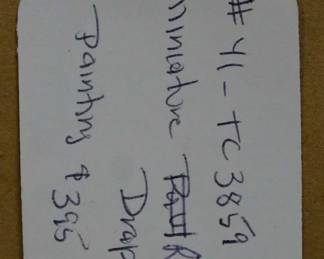 # 41 - TC3859
Miniature
Drap
Painting $395